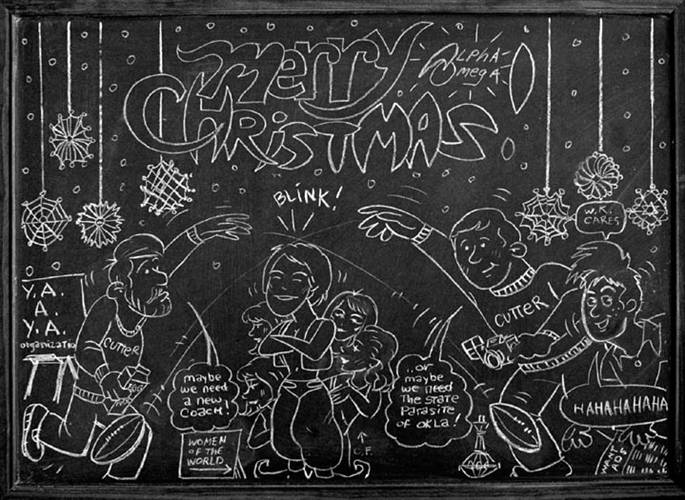 Merry
CHRISTMAS
ALPHA
OMEGA
BLINK!
W.K.
CARES
Y.A.
A.
Y.A.
organizatio
CUTTER
CUTTER
maybe
we need
a new
Coach!
..or
maybe
we need
The State
Parasite
of OKLA!
HAHAHAHAHA
WOMEN
OF THE
WORLD
WANT
ADS